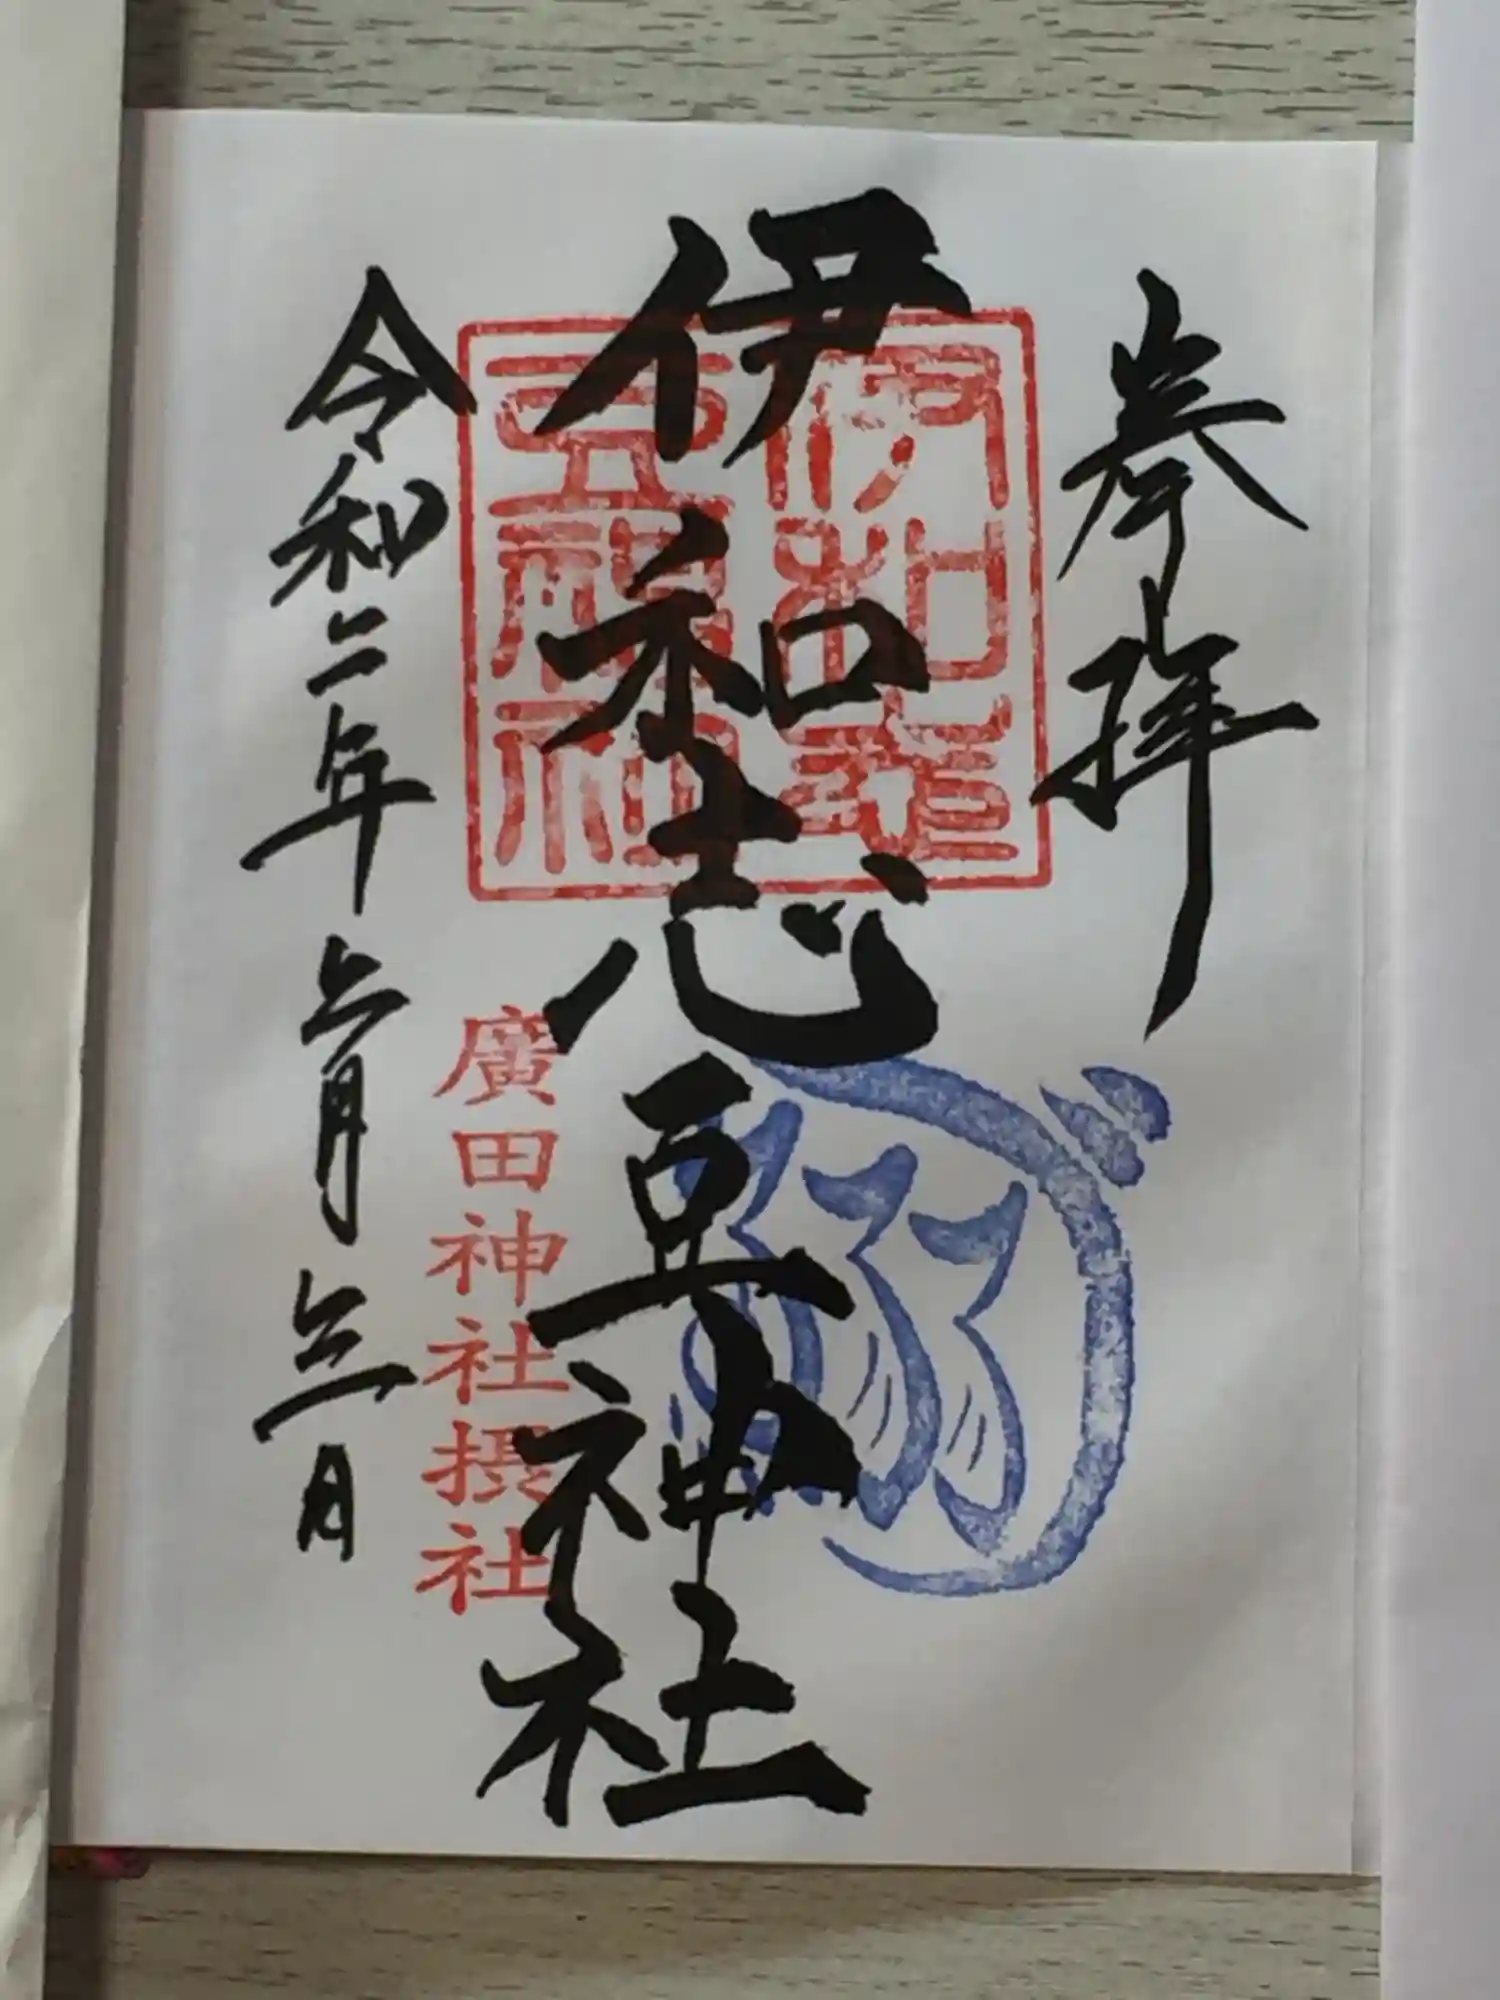 奉拝
伊和志豆神社
伊和志豆神社
廣田神社摂社
令和二年六月三日